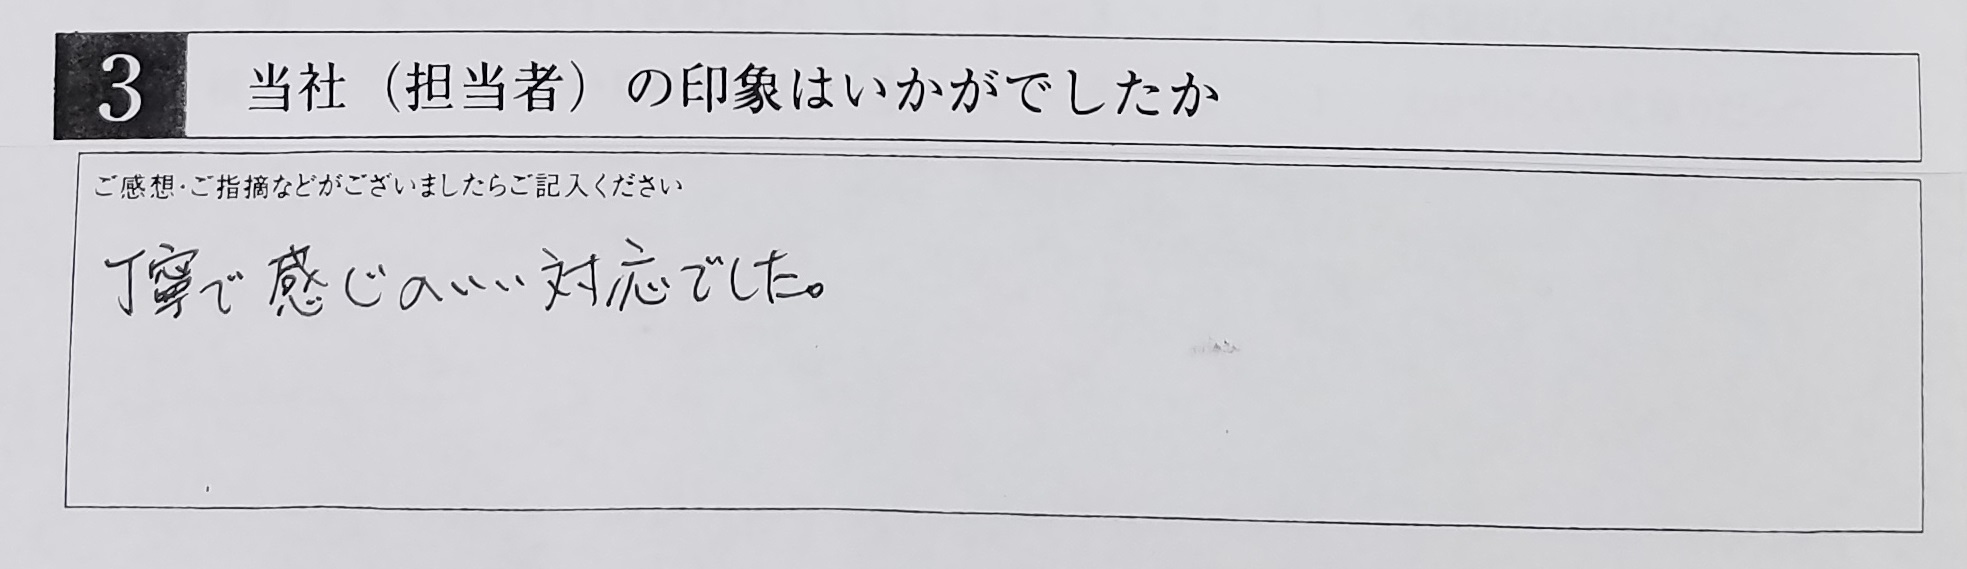 3 当社（担当者）の印象はいかがでしたか
ご感想・ご指摘などがございましたらご記入ください
丁寧で感じのいい対応でした。